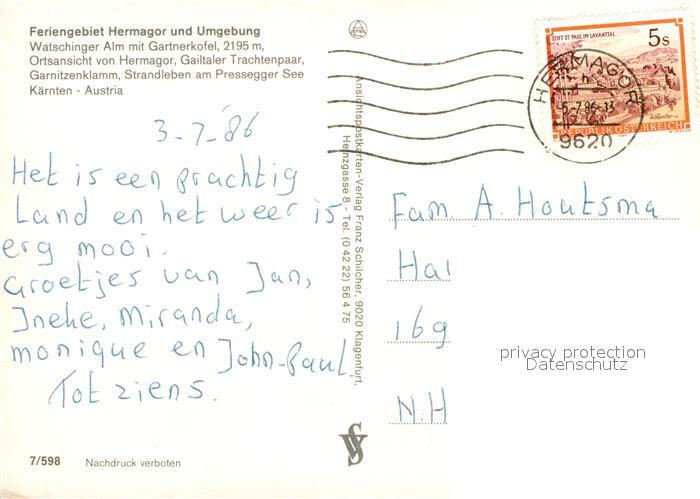 Feriengebiet Hermagor und Umgebung
Watschinger Alm mit Gartnerkofel, 2195 m,
Ortsansicht von Hermagor, Gailtaler Trachtenpaar,
Garnitzenklamm, Strandleben am Pressegger See
Kärnten - Austria
3-7-'86
Het is een prachtig
Land en het weer is
erg mooi.
Groetjes van Jan,
Ineke, Miranda,
monique en John-Paul.
Tot ziens.
7/598 Nachdruck verboten
Ansichtspostkarten-Verlag Franz Schilcher, 9020 Klagenfurt,
Heinzgasse 8 - Tel. (0 42 22) 56 4 75
STIFT ST. PAUL IM LAVANTTAL
5 S
REPUBLIK ÖSTERREICH
HERMAGOR
-5.-7.86-13
9620
Fam. A. Houtsma
Hal
169
N.H
privacy protection
Datenschutz